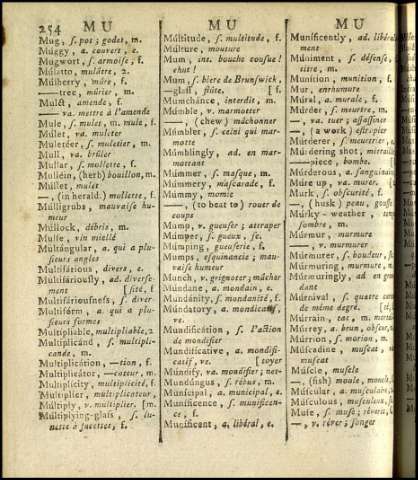 254 M U
Mug, ſ. pot; godet, m.
Múggy, a. couvert, e.
Mugwort, ſ. armoiſe, f.
Mulátto, mulâtre, 2.
Múlberry, mûre, f.
—tree, mûrier, m.
Mulct, amende, f.
— va. mettre à l'amende
Mule, ſ. mulet, m. mule, f.
Múler, va. muleter
Muletéer, ſ. muletier, m.
Mull, va. brûler
Mullar, ſ. mollette, f.
Mulléin, (herb) bouillon, m.
Múllet, mulet
—, (in herald.) mollette, f.
Múlligrubs, mauvaiſe hu-
meur
Múllock, débris, m.
Mulſe, vin miellé
Multángular, a. qui a plu-
ſieurs angles
Multifárious, divers, e.
Multifáriouſly, ad. diverſe-
ment [ſité, f
Multifáriouſneſs, ſ. diver-
Múltiform, a. qui a plu-
ſieurs formes
Múltipliable, multipliable, 2
Multiplicánd, ſ. multipli-
cande, m.
Multiplicátion, —tion, f.
Multiplicátor, —cateur, m.
Multiplicity, multiplicité, f.
Múltiplier, multiplicateur,
Múltiply, v. multiplier. [m.
Múltiplying-glaſs, ſ. lu-
nette à facettes, f.
M U
Múltitude, ſ. multitude, f.
Múlture, mouture
Mum, int. bouche couſue!
chut!
Mum, ſ. biere de Brunſwick,
—glaſs, flûte. [f.
Mumchánce, interdit, m.
Múmble, v. marmotter
—, (chew) mâchonner
Múmbler, ſ. celui qui mar-
motte
Múmblingly, ad. en mar-
mottant
Múmmer, ſ. maſque, m.
Múmmery, maſcarade, f.
Múmmy, momie
—, (to beat to) rouer de
coups
Mump, v. gueuſer; attraper
Múmper, ſ. gueux, ſe.
Múmping, gueuſerie, f.
Mumps, eſquinancie; mau-
vaiſe humeur
Munch, v. grignoter; mâcher
Múndane, a. mondain, e.
Mundánity, ſ. mondanité, f.
Múndatory, a. mondicati,
ve.
Mundificátion, ſ. l'action
de mondifier
Mundíficative, a. mondifi-
catif, ve. [oyer
Múndify, va. mondifier; net-
Mundúngus, ſ. rébut, m.
Municipal, a. municipal, e.
Munificence, ſ. munificen-
ce, f.
Munificent, a. libéral, e.
M U
Munificently, ad. libéral-
ment
Múniment, ſ. défenſe,
titre, m.
Munition, munition, f.
Mur, enrhumure
Múral, a. murale, f.
Múrder, ſ. meurtre, m.
—, va. tuer; aſſaſſiner
—, (a work) eſtropier
Múrderer, ſ. meurtrier,
Múrdering ſhot, mitraille
—piece, bombe.
Múrderous, a. ſanguinaire
Mure up, va. murer.
Murk, ſ. obſcurité,
—, (huſk) peau, gouſſe
Múrky-weather, temps
ſombre, m.
Múrmur, murmure
—, v. murmurer
Múrmurer, ſ. boudeur,
Múrmuring, murmure, m.
Múrmuringly, ad. en gron-
dant
Múrnival, ſ. quatre cartes
de même degré.
Murrain, tac, m. mortalité
Múrrey, a. brun, obſcur,
Múrrion, ſ. morion, m.
Múſcadine, muſcat,
muſcat
Múſcle, muſcle
—, (fiſh) moule, f.
Múſcular, a. muſculaire,
Múſculous, muſculeux,
Muſe, ſ. muſe; rêverie,
—, v. rêver; ſonger